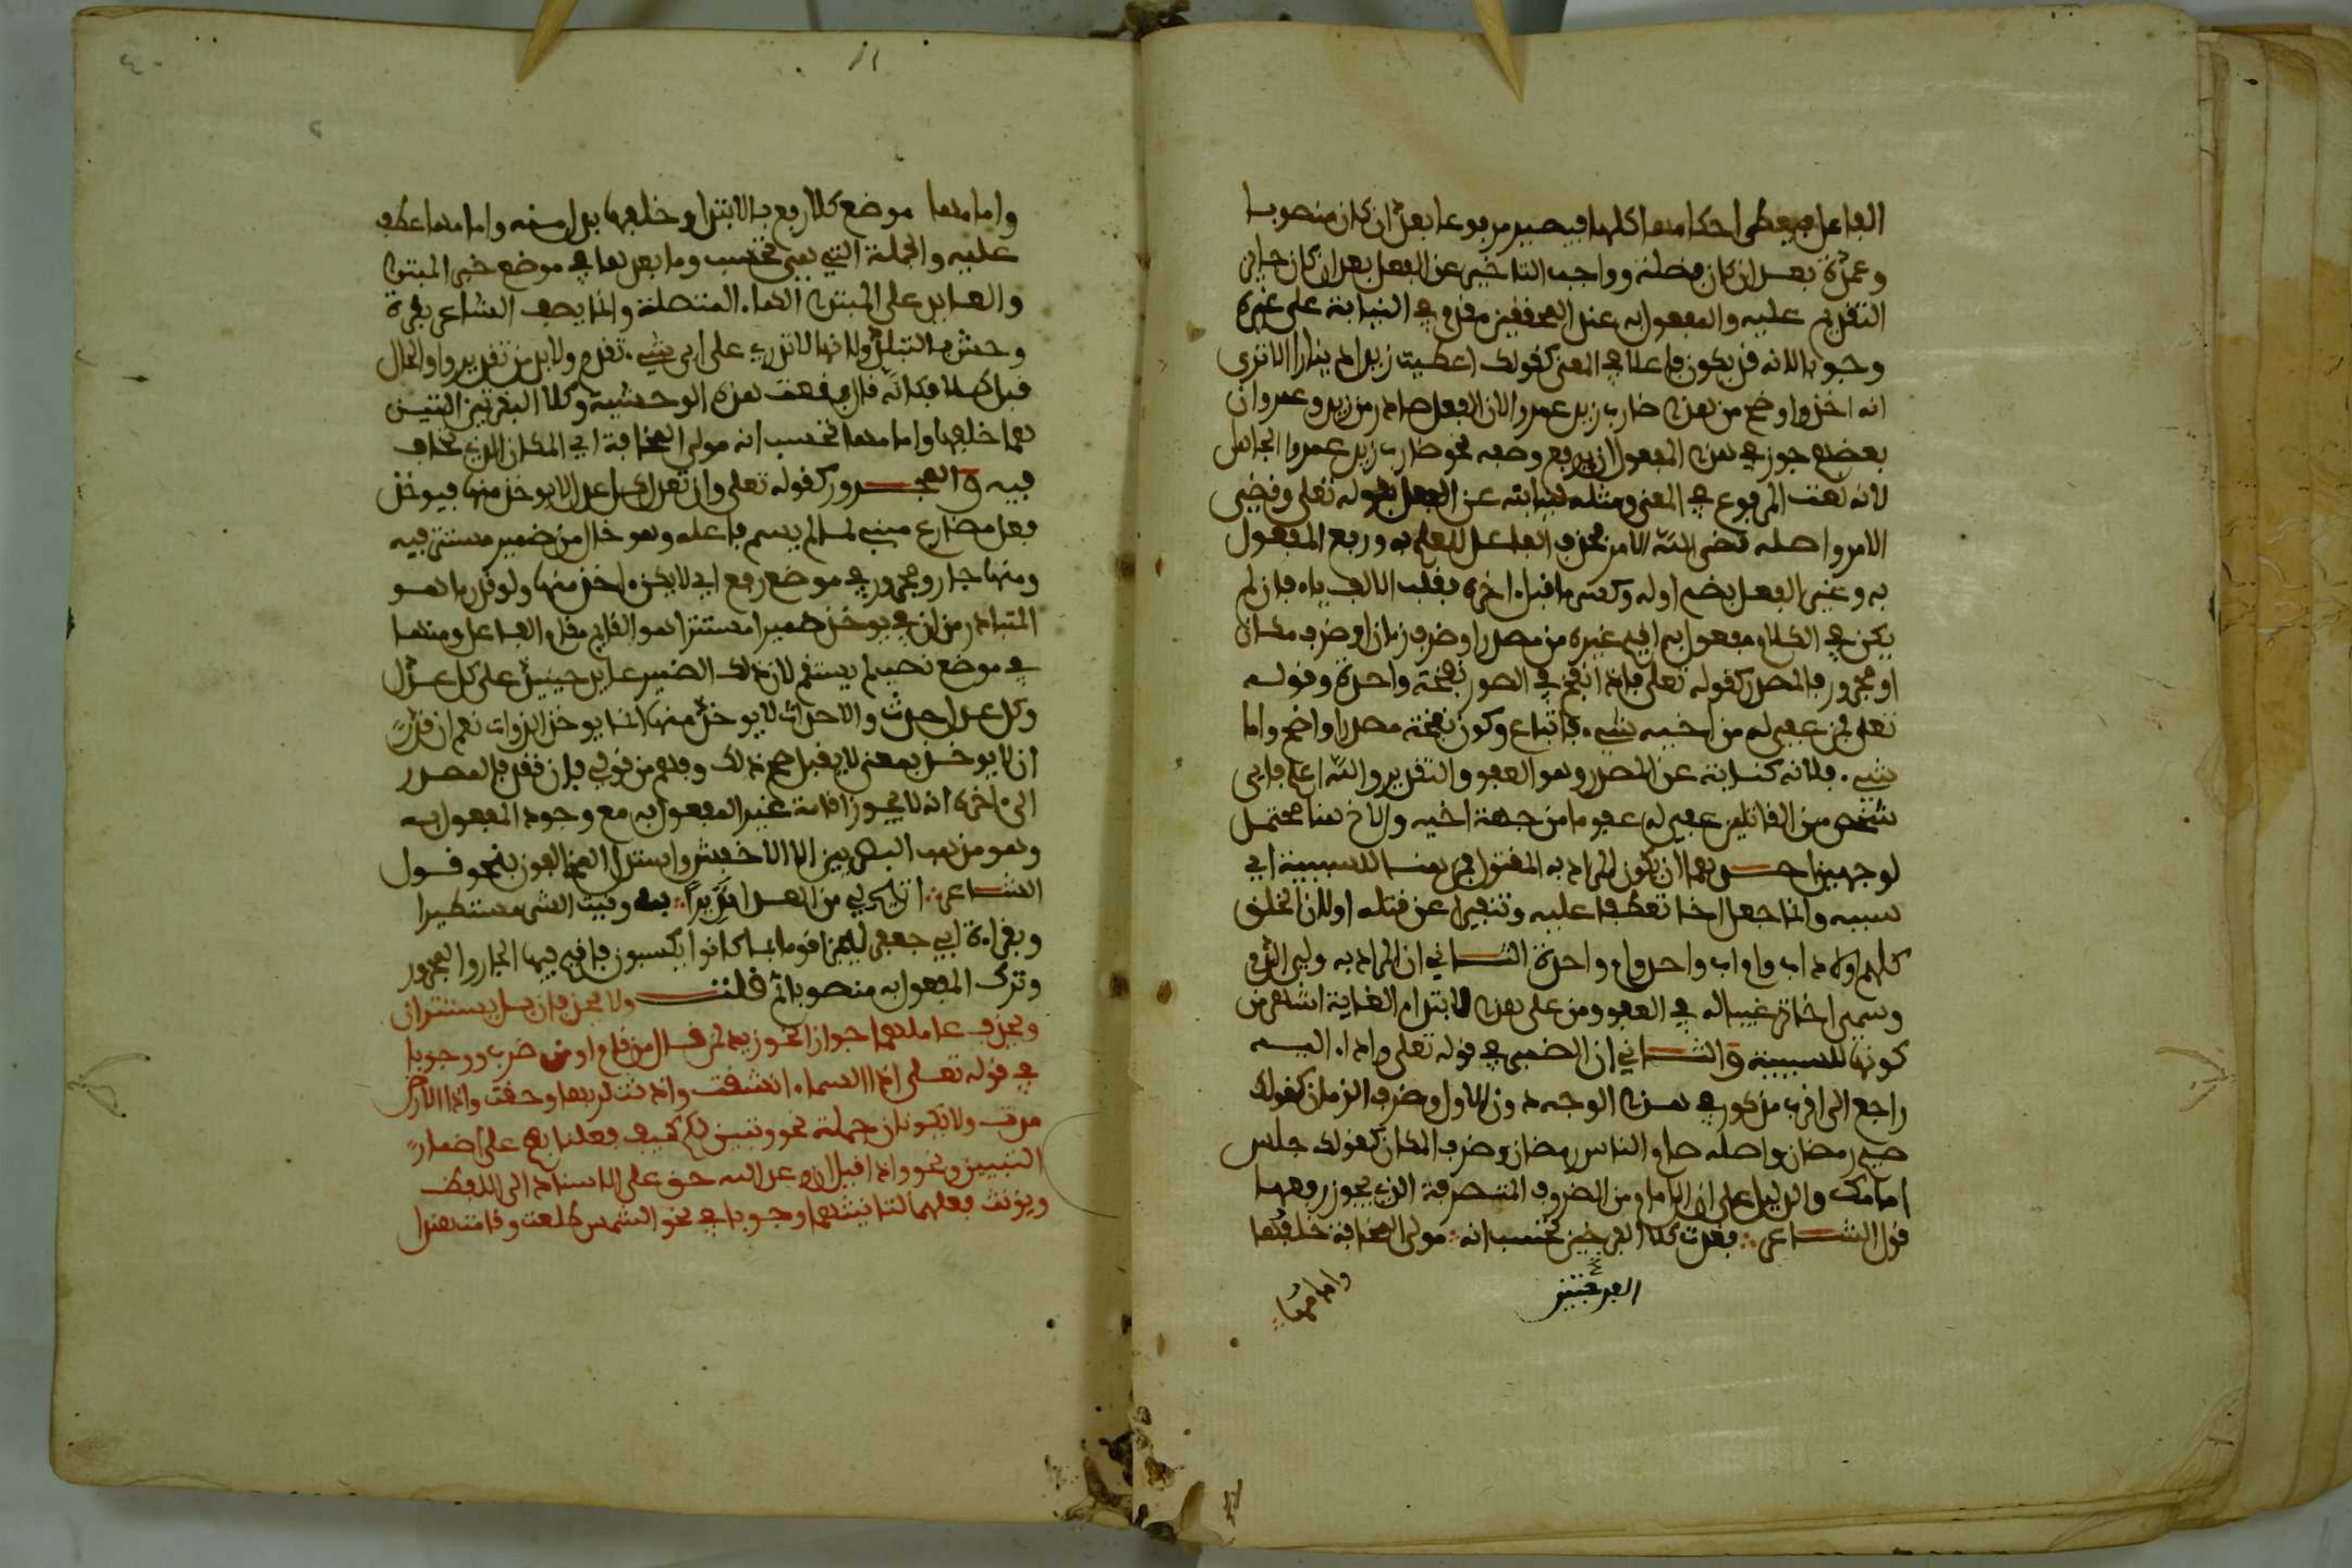 الفاعل فيعطى احكامها كلها فيصير مرفوعا بعد ان كان منصوبا
وعمدة بعد ان كان فضلة وواجب التاخير عن الفعل بعد ان كان جايز
التقديم عليه والمفعول به عند المحققين مقدم في النيابة على غيره
وجوبا لانه قد يكون فاعلا في المعنى كقولك اعطيت زيدا دينارا الا ترى
انه اخذ واوضح من هذا ضارب زيد عمروا لان الفعل صادر من زيد وعمرو ان
بعضهم جوز في هذا المفعول ان يرفع وصفه نحو ضارب زيد عمروا الجاهل
لانه نعت المرفوع في المعنى ومثله نيابته عن الفعل قوله تعلى وقضي
الامر واصله قضى الله الامر فحذف الفاعل للعلم به ورفع المفعول
به وغير الفعل بضم اوله وكسر ما قبل اخره فقلب الالف ياء فان لم
يكن في الكلام مفعول به اقيم غيره من مصدر او ضرف زمان او ضرف مكان
او مجرور فالمصدر كقوله تعلى فاذا نفخ في الصور نفخة واحدة وقوله
تعلى فمن عفي له من اخيه شيء فاتباع وكون نفخة مصدرا واضح واما
شيء فلانه كناية عن المصدر وهو العفو والتقدير والله اعلم فاي
شخص من القاتلين عفي له عفو ما من جهة اخيه والاخ هنا محتمل
لوجهين احدهما ان يكون المراد به المقتول فمن هنا للسببية اي
بسببه وانما جعل اخا تعطفا عليه وتنفيرا عن قتله او لان الخلق
كلهم اولاد اب وام اب واحد وام واحدة الثاني ان المراد به ولي الدم
وسمي اخا ترغيبا له في العفو ومن على هذا لابتداء الغاية اشهر من
كونها للسببية والثاني ان الضمير في قوله تعلى واداء اليه
راجع الى اقرب مذكور في هذا الوجه دون الاول وضرف الزمان كقولك
صيم رمضان واصله صام الناس رمضان وضرف المكان كقولك جلس
امامك والدليل على ان الامام من الضروف المتصرفة التي يجوز رفعها
قول الشاعر فغدت كلا الفرجين تحسب انه مولى المخافة خلفها
الفرجين
وامامها
وامامها موضع كلا رفع بالابتداء وخلفها بدل منه وامامها عطف
عليه والجملة التي هي تحسب وما بعدها في موضع خبر المبتدا
والعايد على المبتدا الهاء المتصلة وانما يصف الشاعر بقرة
وحشية التبلد ولانها لا تدري على اي شيء تقدم ولا بد من تقدير واو الحال
قبل كلا فكانه قال وقعت هذه الوحشية وكلا البقرتين التين
هما خلفها وامامها تحسب انه مولى المخافة اي المكان الذي تخاف
فيه والمجرور كقوله تعلى وان تعدل كل عدل لا يوخذ منها فيوخذ
فعل مضارع مبني لما لم يسم فاعله وهو خال من ضمير مستتر فيه
ومنها جار ومجرور في موضع رفع اي لا يكن اخذ منها ولو قدر ما هو
المتبادر من ان في يوخذ ضميرا مستترا هو القايم مقام الفاعل ومنها
في موضع نصب لم يستقم لان ذلك الضمير عايد حينيذ على كل عدل
وكل عدل حدث والاحداث لا يوخذ منها انما يوخذ الذوات نعم ان قدر
ان لا يوخذ بمعنى لا يقبل صح ذلك وفهم من قولي فان فقد فالمصدر
الى اخره انه لا يجوز اقامة غير المفعول به مع وجود المفعول به
وهو مذهب البصريين الا الاخفش واستدل المخالفون بنحو قول
الشاعر اتيح لي من العدا نذيرا به وقيت الشر مستطيرا
وبقراءة ابي جعفر ليجزى قوما بما كانوا يكسبون فاقيم فيها الجار والمجرور
وترك المفعول به منصوبا ثم قلت ولا يحذفان بل يستتران
ويحذف عاملهما جوازا نحو زيد لمن قال من قام او من ضرب ووجوبا
في قوله تعلى اذا السماء انشقت واذنت لربها وحقت واذا الارض
مدت ولا يكونان جملة نحو وتبين لكم كيف فعلنا بهم على اضمار
التبيين ونحو واذا قيل ان وعد الله حق على الاسناد الى اللفظ
ويونث فعلهما لتانيثهما وجوبا في نحو الشمس طلعت وقامت هند